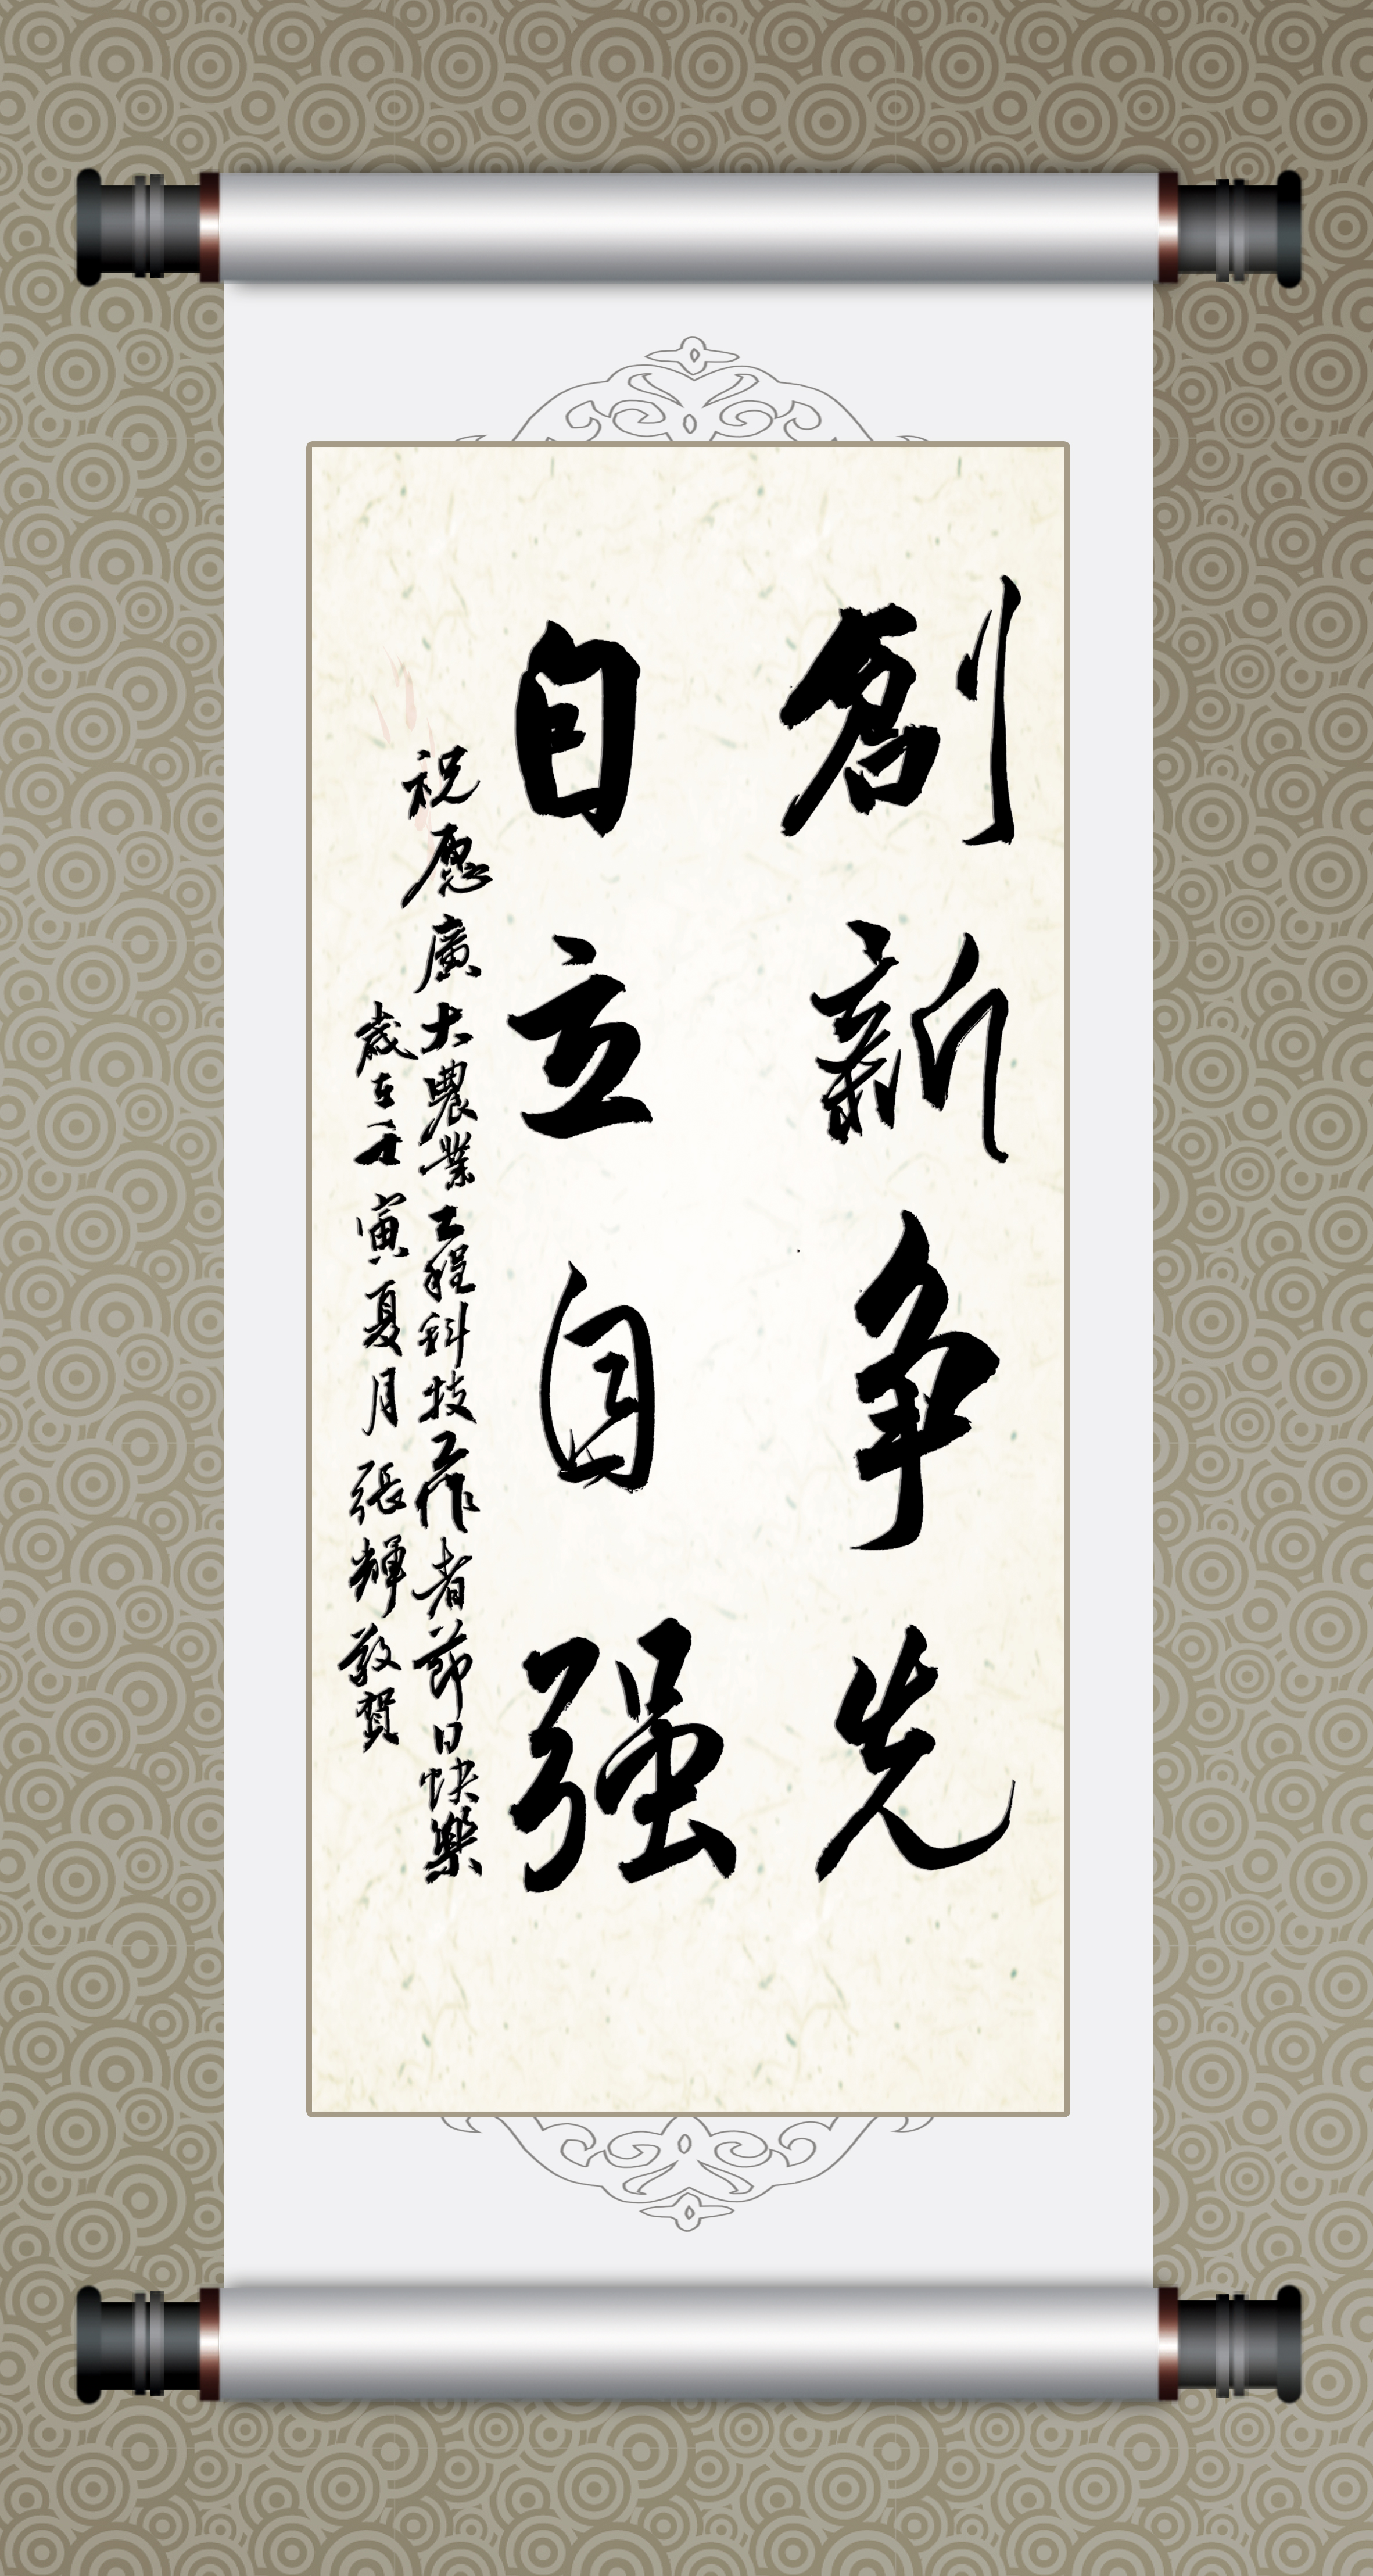 創新争先
自立自强
祝愿廣大農業工程科技工作者節日快樂
歲在壬寅夏月張輝敬賀